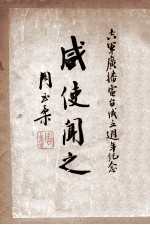 六軍廣播電台成立週年紀念
咸使聞之
周至柔